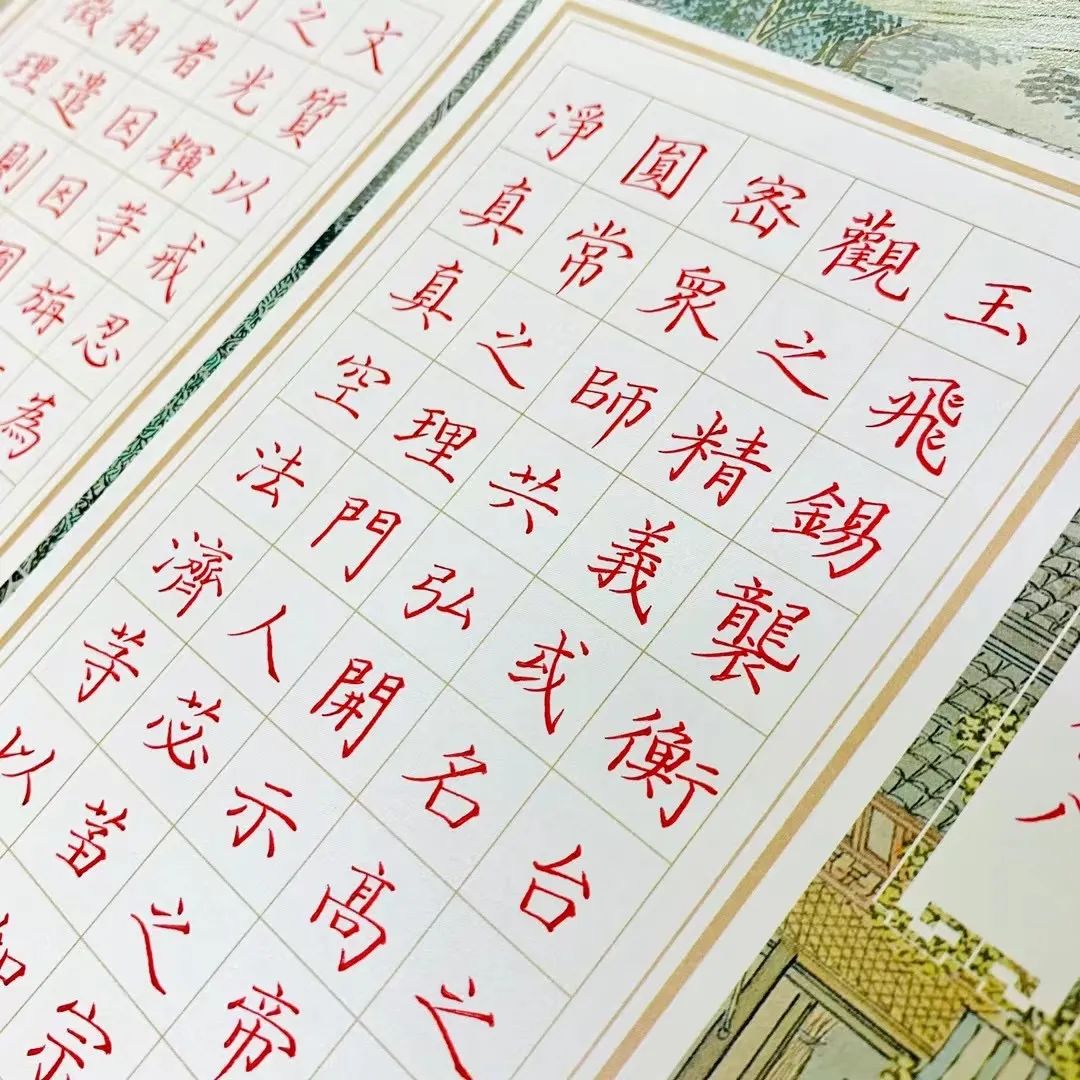 文質以戒忍為
之光輝等旃
者因因
相遣則
微理
玉飛錫襲衡台之
觀之精義或名高帝
密眾師共弘開示之宗
圓常之理門人苾蒭如
淨真真空法濟等以